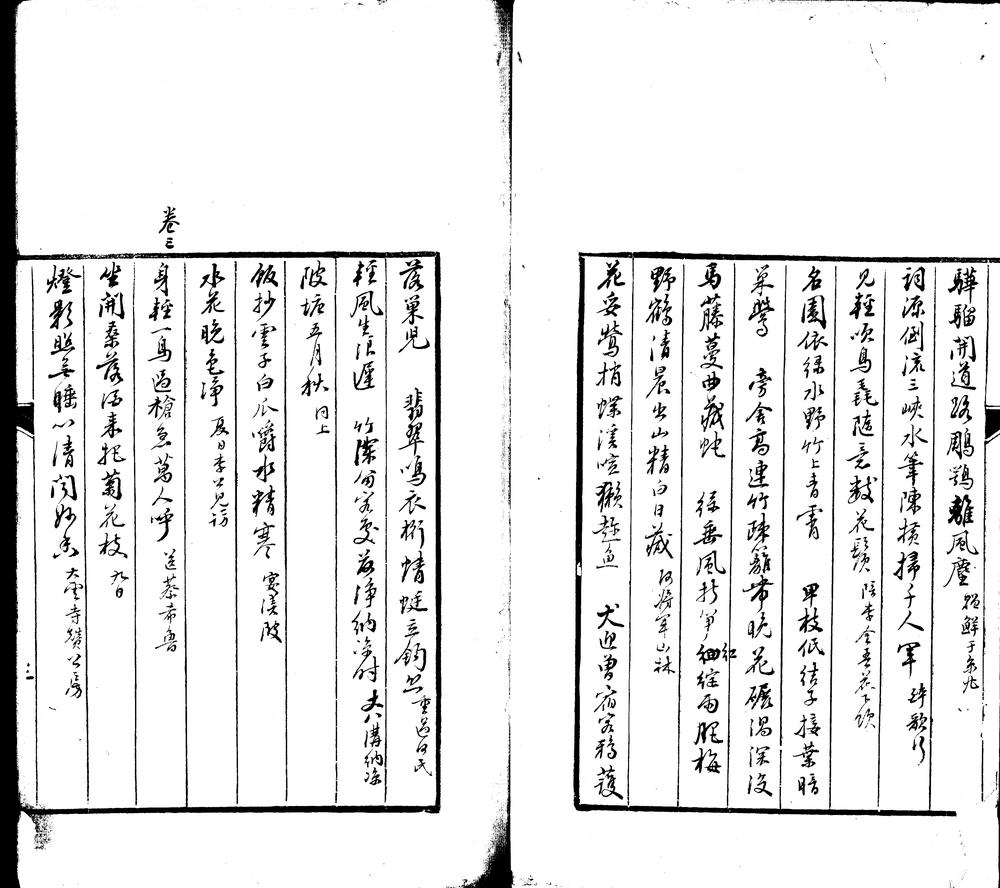 驊騮開道路鵰鶚離風塵 贈鮮于京兆
詞源倒流三峽水筆陣橫掃千人軍 醉歌行
見輕吹鳥毳隨意數花鬚 陪李金吾花下飲
名園依綠水野竹上青霄 卑枝低結子接葉暗
巢鶯 旁舍高連竹疎籬帶晚花碾渦深沒
馬藤蔓曲藏蛇 綠垂風折筍紅綻雨肥梅
野鶴清晨出山精白日藏 何將軍山林
花妥鶯捎蝶溪喧獺趁魚 犬迎曾宿客鴉護
落巢兒 翡翠鳴衣桁蜻蜓立釣絲 重過何氏
輕風生浪遲 竹深留客處荷淨納涼時 丈八溝納涼
陂塘五月秋 同上
飯抄雲子白瓜嚼水精寒 渼陂
水花晚色淨 夏日李公見訪
卷三
身輕一鳥過槍急萬人呼 送蔡希魯
坐開桑落酒來把菊花枝 九日
燈影照無睡心清聞妙香 大雲寺贊公房